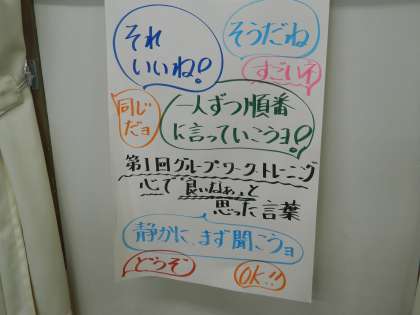 それ
いいね!
そうだね
すごいぞ
同じ
だョ
一人ずつ順番
に言っていこうョ!
第1回グループワークトレーニング
心で"良いなぁ"と
思った言葉
静かに、まず聞こうョ
どうぞ
OK!!